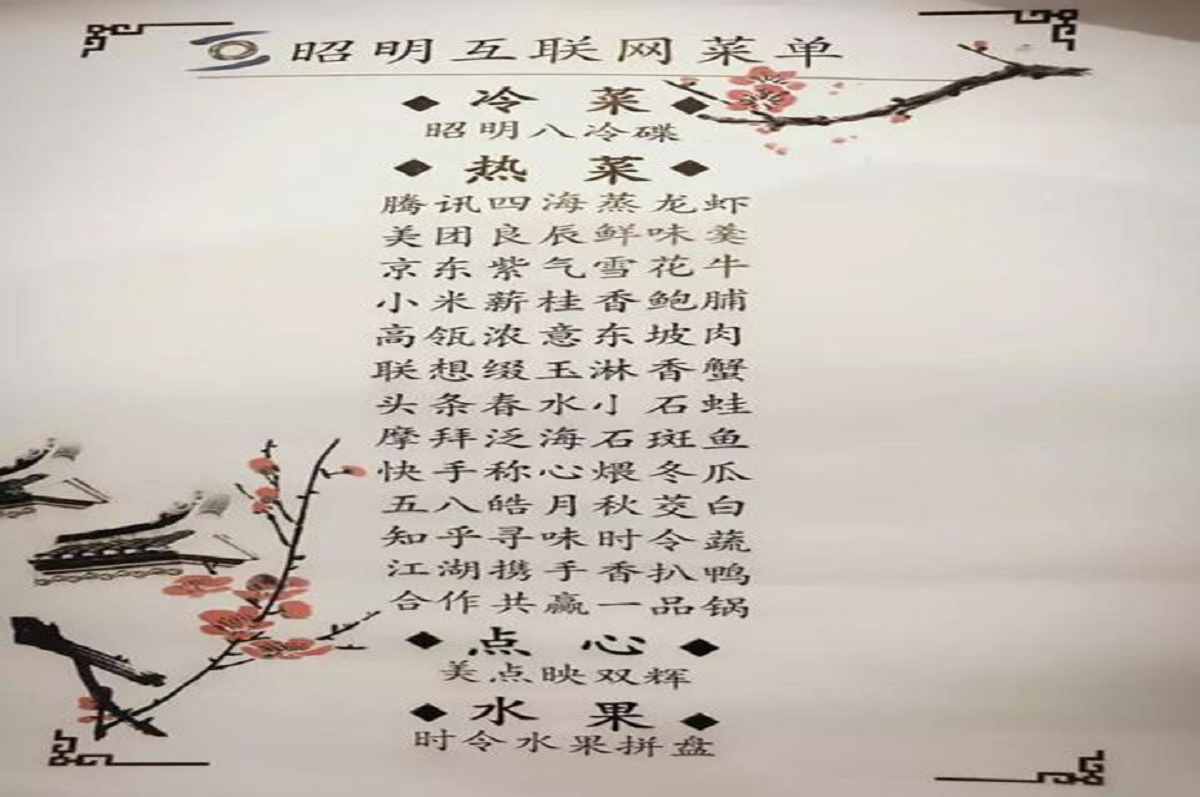 昭明互联网菜单
冷 菜
昭明八冷碟
热 菜
腾讯四海蒸龙虾
美团良辰鲜味羹
京东紫气雪花牛
小米薪桂香鲍脯
高瓴浓意东坡肉
联想缀玉淋香蟹
头条春水小石蛙
摩拜泛海石斑鱼
快手称心煨冬瓜
五八皓月秋茭白
知乎寻味时令蔬
江湖携手香扒鸭
合作共赢一品锅
点 心
美点映双辉
水 果
时令水果拼盘